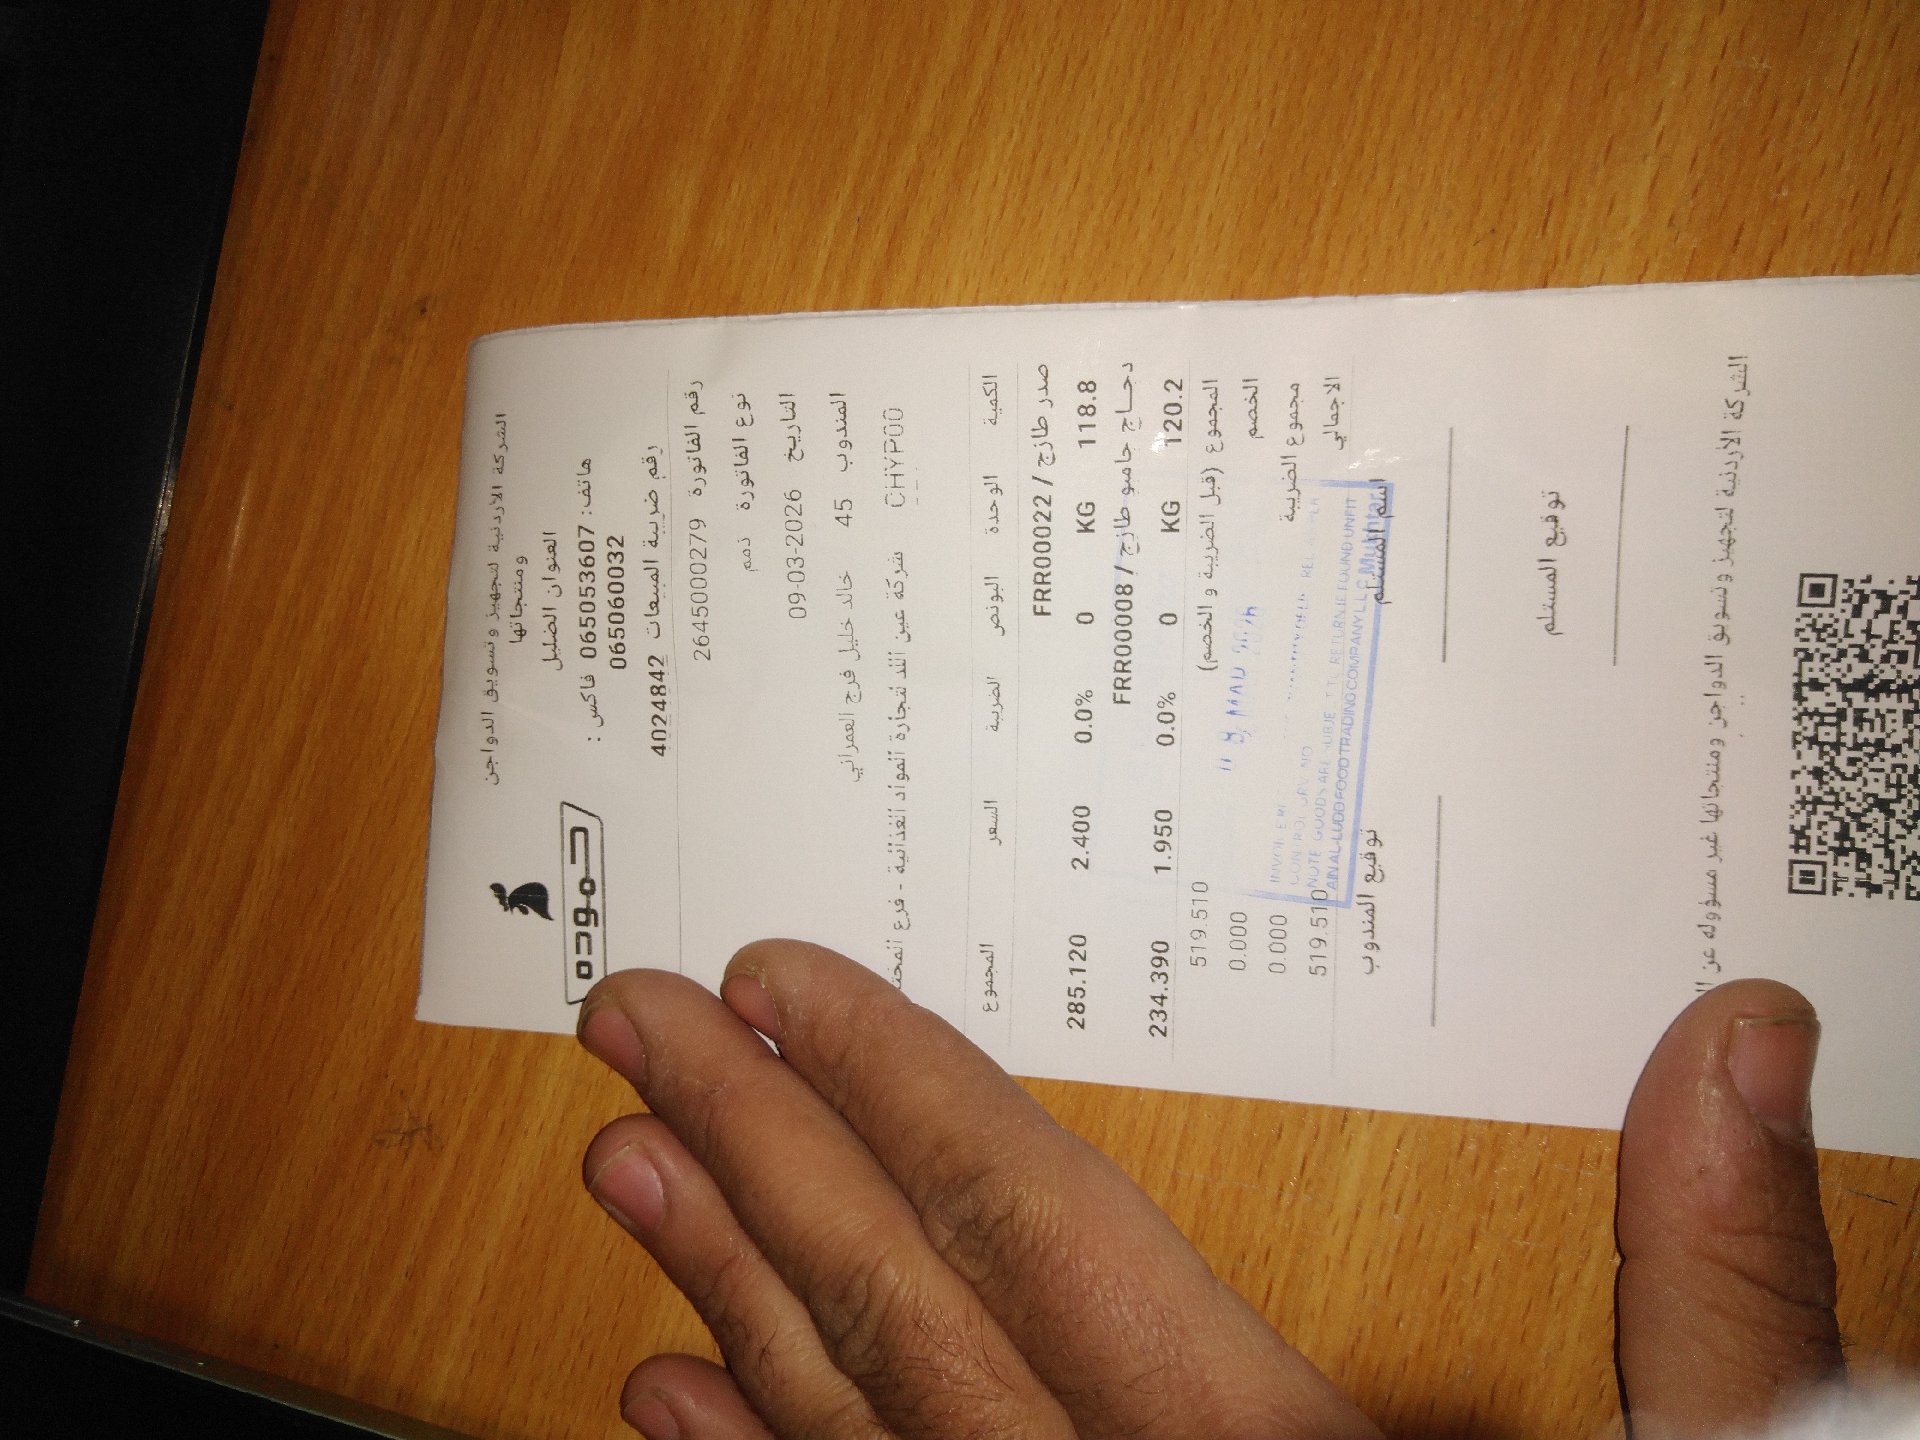 حموده
الشركة الأردنية لتجهيز وتسويق الدواجن
ومنتجاتها
العنوان الضليل
هاتف: 065053607 فاكس :
065060032
رقم ضريبة المبيعات 4024842
رقم الفاتورة 26450000279
نوع الفاتورة ذمم
التاريخ 09-03-2026
المندوب 45 خالد خليل فرج العمراني
CHYP00 شركة عين اللد لتجارة المواد الغذائية - فرع
الكمية الوحدة البونص الضريبة السعر المجموع
صدر طازج / FRR00022
118.8 KG 0 0.0% 2.400 285.120
دجاج جامبو طازج / FRR00008
120.2 KG 0 0.0% 1.950 234.390
المجموع (قبل الضريبة و الخصم) 519.510
الخصم 0.000
مجموع الضريبة 0.000
الاجمالي 519.510
NOTE GOODS ARE RETURN IF FOUND UNFIT
AIN AL-LUDD FOOD TRADING COMPANY LLC Muhtar
اسم المستلم توقيع المندوب
توقيع المستلم
الشركة الأردنية لتجهيز وتسويق الدواجن ومنتجاتها غير مسؤوله عن